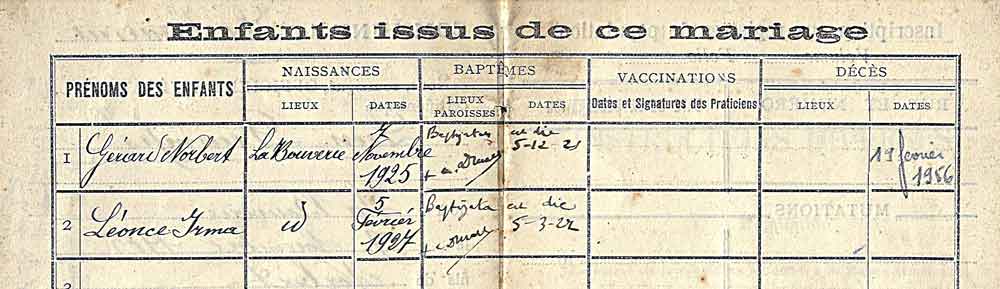 Enfants issus de ce mariage
PRÉNOMS DES ENFANTS
NAISSANCES
BAPTÊMES
VACCINATIONS
DÉCÈS
LIEUX
DATES
LIEUX
PAROISSES
DATES
Dates et Signatures des Praticiens
LIEUX
DATES
1
Gérard Norbert
La Bouverie
7
Novembre
1925
die
5-12-25
19 février
1956
2
Léonce Irma
id
5
Février
1927
die
5-3-27
3